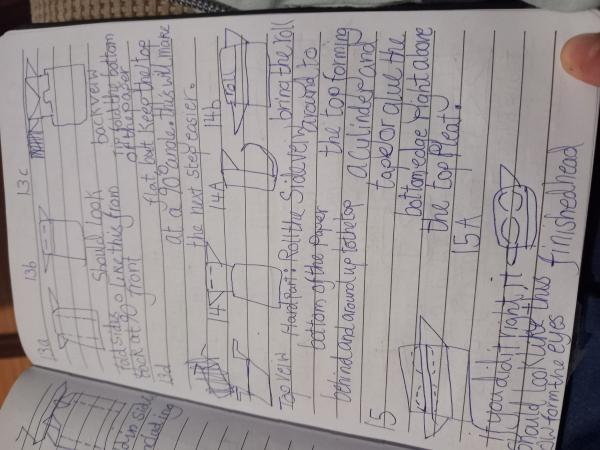 13a 13b 13c
Should look backveiw
sides like this from unfold the bottom
back at 90 front of the paper
flat but keep the top
at a 90° angle. This will make
the next step easier.
14 14A 14b
roll
Top veiw Hard part: Roll the Side very bring the roll
bottom of the paper around to
behind and around up to the top the top forming
a cylinder and
15 tape or glue the
bottom edge right above
the top pleat.
15A
If you did it right, it
should look like this finished head
form the eyes